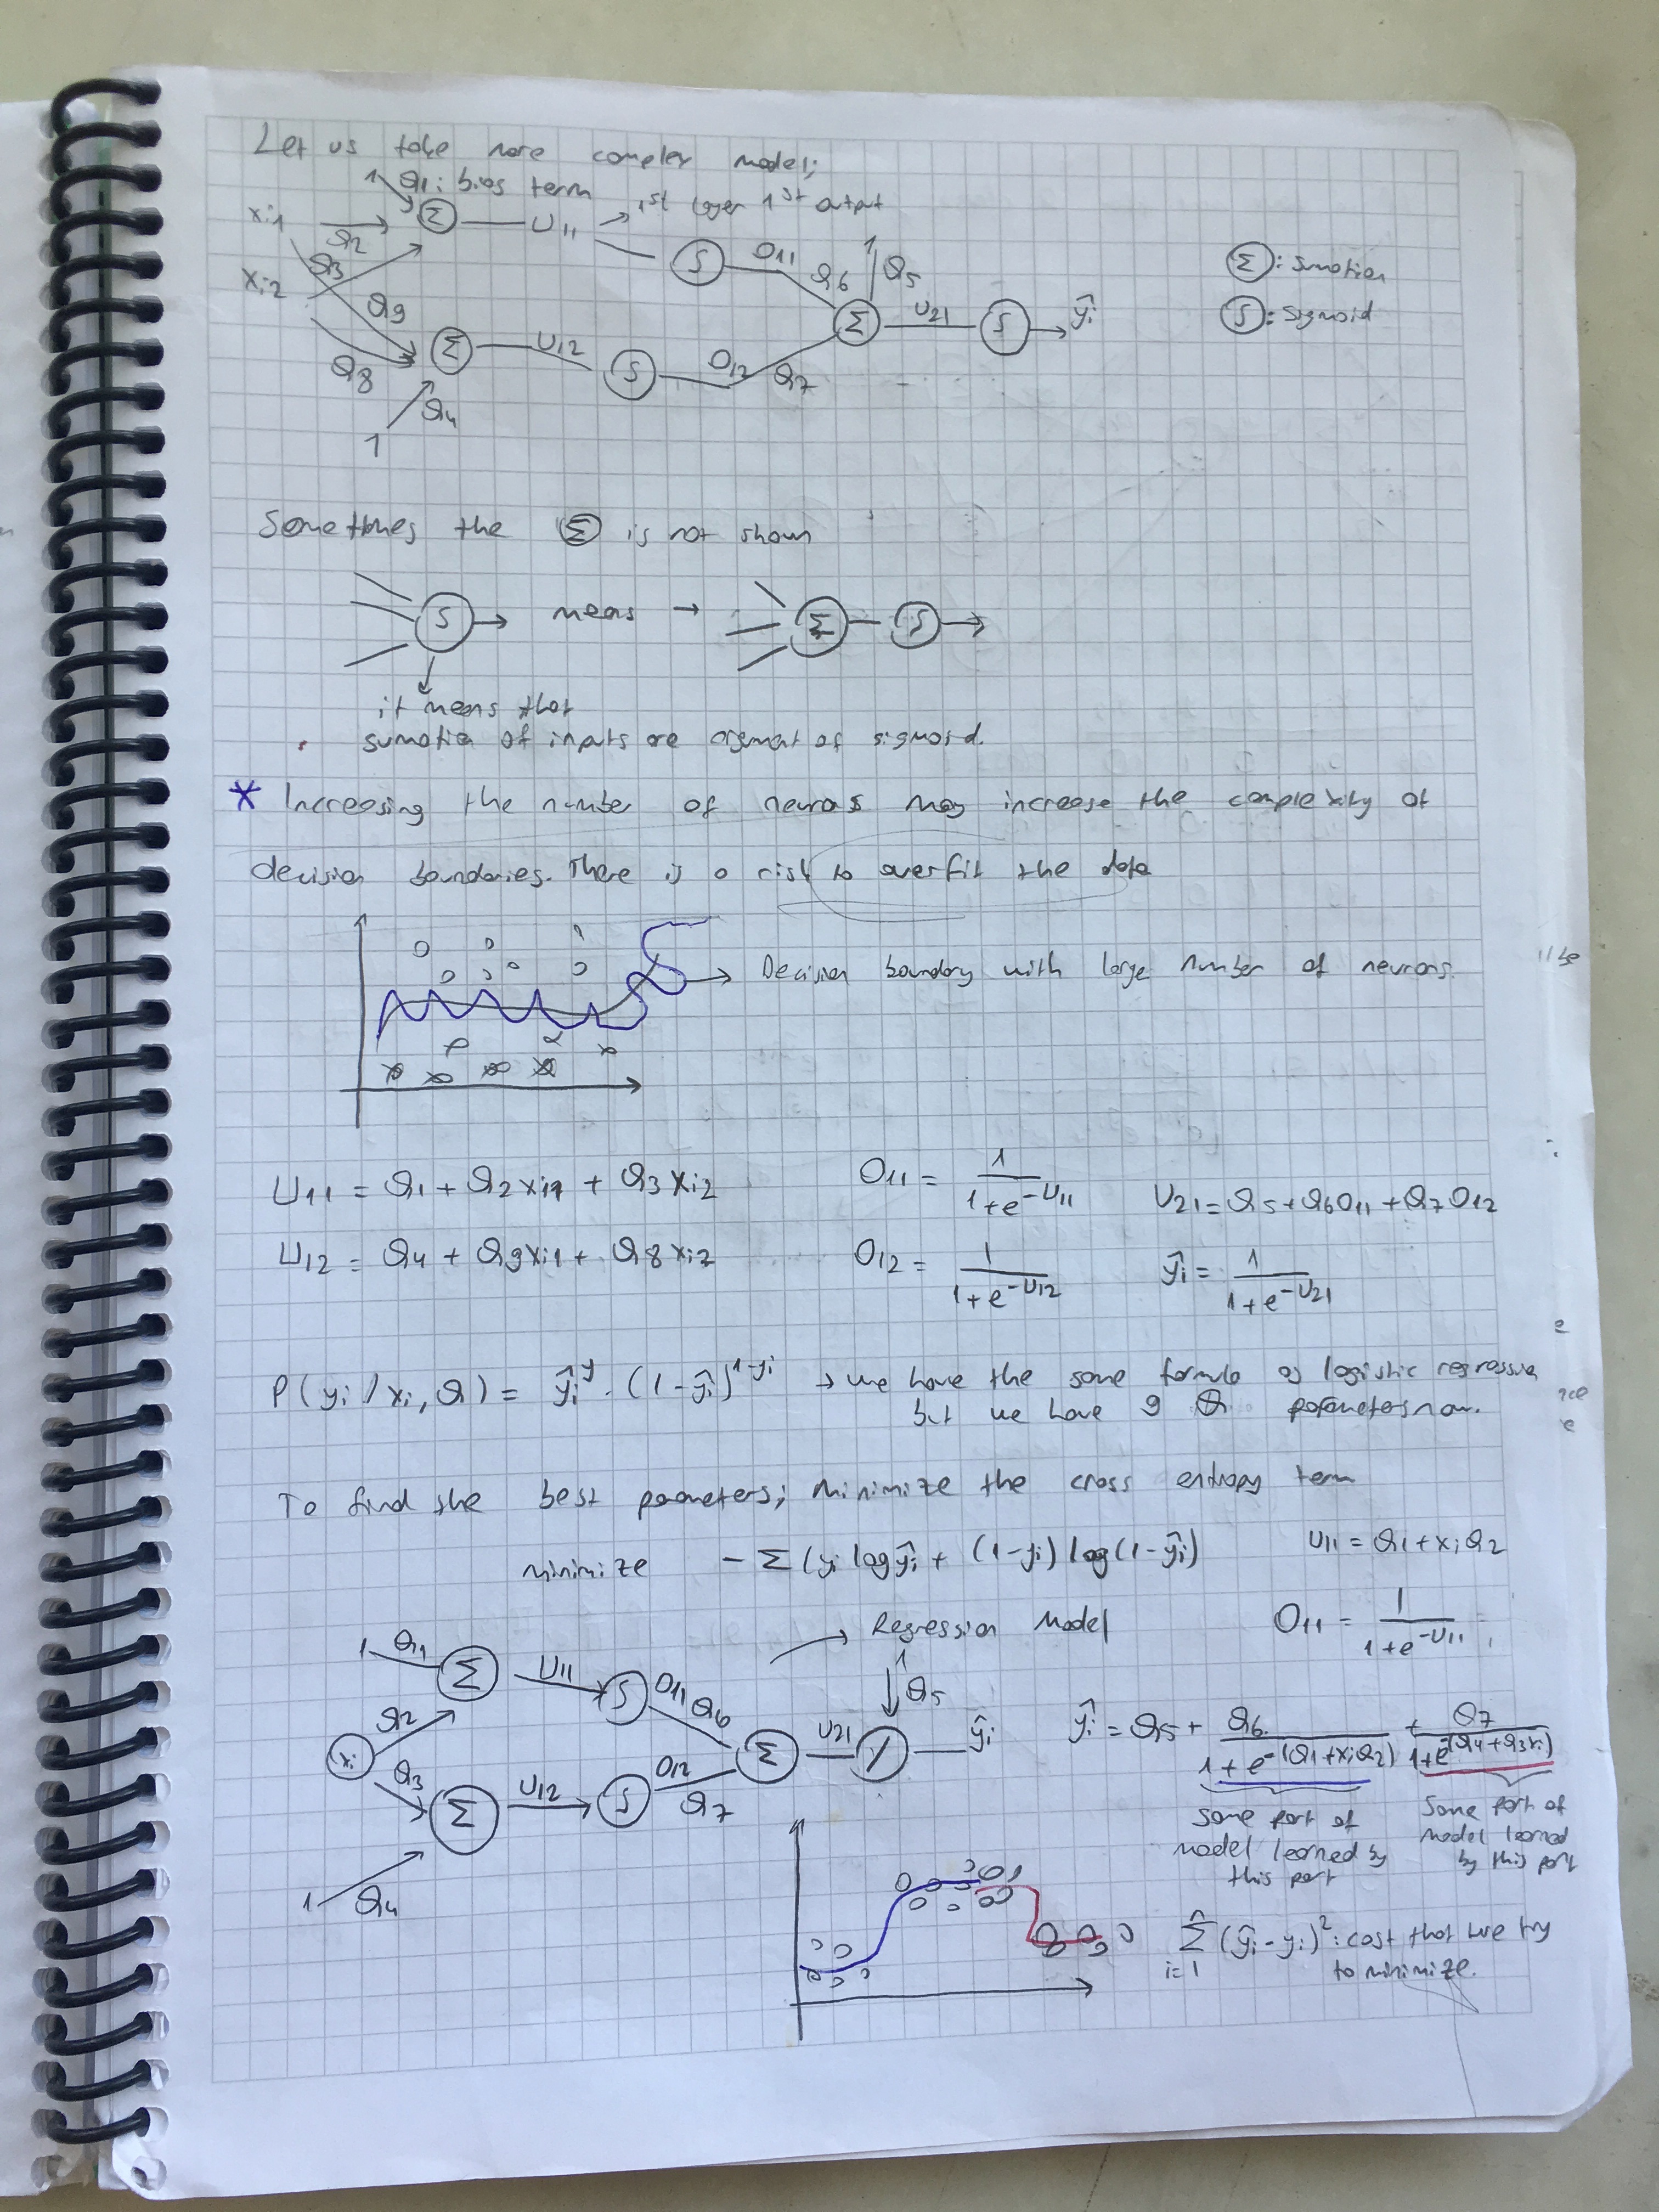 Let us take more complex model;
1 θ1: bias term
xi1 θ2 Σ U11 → 1st layer 1st output
θ3 S O11 θ6 1 θ5
xi2 θ9 Σ U21 S ŷi
θ8 Σ U12 S O12 θ7
1 θ4
Σ: Sumation
S: Sigmoid
Sometimes the Σ is not shown
S → means → Σ S →
it means that
sumation of inputs are argument of sigmoid.
* Increasing the number of neurons may increase the complexity of
decision boundaries. There is a risk to overfit the data
→ Decision boundary with large number of neurons.
U11 = θ1 + θ2xi1 + θ3xi2
O11 = 1/(1+e^-U11)
U21 = θ5+θ6O11+θ7O12
U12 = θ4 + θ9xi1 + θ8xi2
O12 = 1/(1+e^-U12)
ŷi = 1/(1+e^-U21)
P(yi/xi,θ) = ŷi^y . (1-ŷi)^1-yi → we have the same formula as logistic regression
but we have 9 θ parameters now.
To find the best parameters; minimize the cross entropy term
minimize -Σ(yi logŷi + (1-yi) log(1-ŷi)
U11 = θ1+xiθ2
O11 = 1/(1+e^-U11)
→ Regression Model
1 θ1 Σ U11 S O11 θ6 1 θ5
xi θ2 Σ U21 / ŷi
θ3 Σ U12 S O12 θ7
1 θ4
ŷi = θ5 + θ6/(1+e^-(θ1+xiθ2)) + θ7/(1+e^-(θ4+θ3xi))
some part of
model learned by
this part
some part of
model learned
by this part
Σ i=1 n (ŷi-yi)²: cost that we try
to minimize.